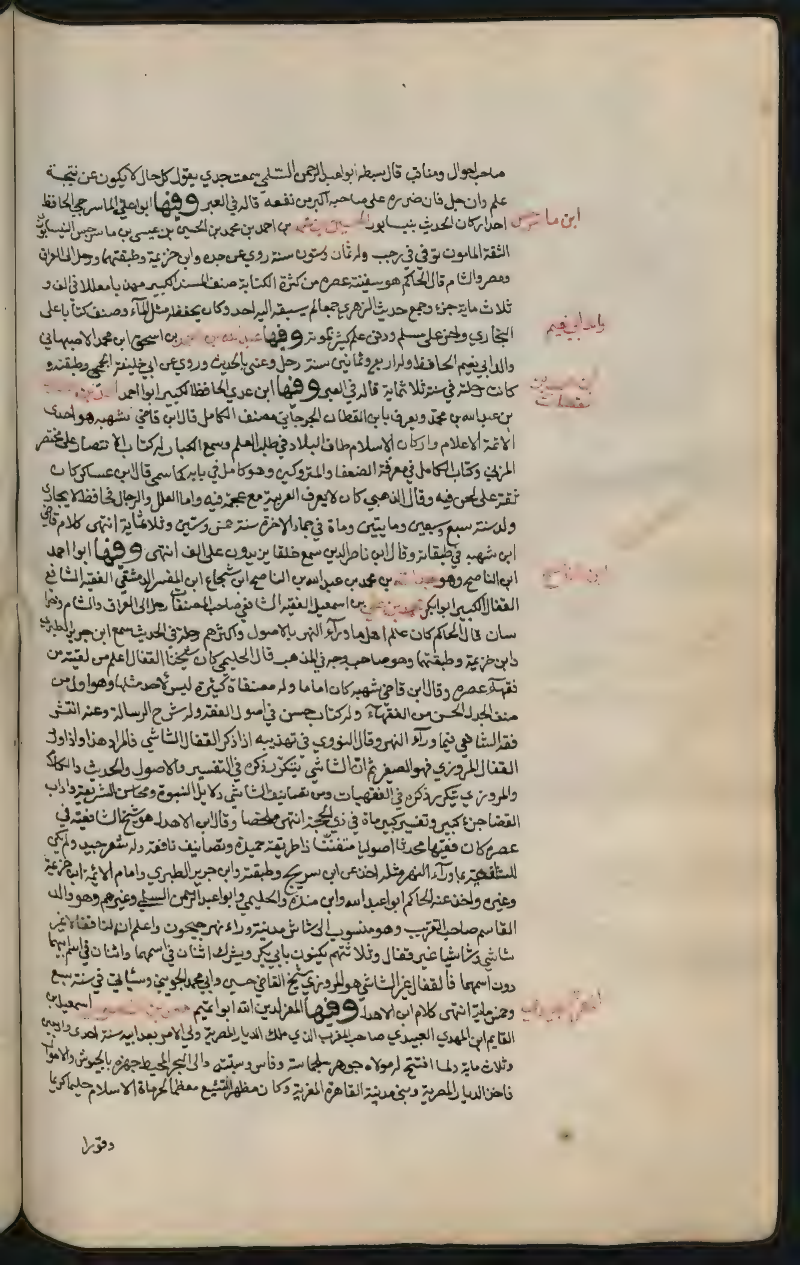 صاحب احوال ومناقب قال سبطه ابوا عبد الرحمن السلمي سمعت جدي يقول كل حال لا يكون عن نتيجة
علم وان جل فان ضرره على صاحبه اكبر من نفعه قاله في العبر وفيها ابوا علي الماسرجي الحافظ
ابن ماسرجس
احد اركان الحديث بنيسابور الحسين بن محمد بن احمد بن محمد بن الحسين بن عيسى بن ماسرجس النيسابوري
الثقة المامون توفي في رجب وله ثمان وستون سنة روي عن جده وابن خزيمة وطبقتهما ورحل الى العراق
ومصر والشام قال الحاكم هو سفينة عصره من كثرة الكتابة صنف المسند الكبير مهذبا معللا في الف و
ثلاث ماية جزء وجمع حديث الزهري جمعا لم يسبقه اليه احد وكان يحفظه مثل الماء وصنف كتابا على
البخاري واخر على مسلم ودفن علم كثير بموته وفيها عبد الله بن احمد بن اسحق ابن محمد الاصبهاني
والد ابي نعيم
والد ابي نعيم الحافظ وله اربع وثمانين سنة رحل وعني بالحديث وروي عن ابي خليفة الجمحي وطبقته و
كانت رحلته في سنة ثلاثماية قاله في العبر وفيها ابن عدي الحافظ الكبير ابوا احمد عبد الله بن عدي
بن عبد الله بن محمد ويعرف بابن القطان الجرجاني مصنف الكامل قال ابن قاضي شهبه هو احدى
الائمة الاعلام واركان الاسلام طاف البلاد في طلب العلم وسمع الكبار له كتاب الانتصار على مختصر
المزني وكتاب الكامل في معرفة الضعفا والمتروكين وهو كامل في بابه كما سمي قال ابن عساكر كان
ثقة على لحن فيه وقال الذهبي كان لا يعرف العربية مع عجمة فيه واما العلل والرجال فحافظ لا يجارى
ولد سنة سبع وسبعين ومايتين ومات في جماد الاخرة سنة خمس وستين وثلاثماية انتهى كلام قاضي
ابن شهبه في طبقاته وقال ابن ناصر الدين سمع خلقا يزيدون على الف انتهى وفيها ابوا احمد
ابن الناصح
ابن الناصح وهو عبد الله بن محمد بن عبد الله بن الناصح ابن شجاع ابن المفسر الدمشقي الفقيه الشافعي
القفال الكبير ابوا بكر محمد بن علي بن اسمعيل الفقيه الشافعي صاحب المصنفات رحل الى العراق والشام وخرا
سان قال الحاكم كان علم اهل ما وراء النهر بالاصول واكثرهم رحلة في الحديث سمع ابن جرير الطبري
وابن خزيمة وطبقتهما وهو صاحب وجه في المذهب قال الحليمي كان شيخنا القفال اعلم من لقيته من
فقهاء عصره وقال ابن قاضي شهبه كان اماما وله مصنفات كثيرة ليس لاحد مثلها وهو اول من
صنف الجدل الحسن من الفقهاء وله كتاب حسن في اصول الفقه وله شرح الرسالة وعنه انتشر
فقه الشافعي فيما وراء النهر وقال النووي في تهذيبه اذا ذكر القفال الشاشي فالمراد هذا واذا ورد
القفال المروزي فهو الصغير ثم ان الشاشي يتكرر ذكره في التفسير والاصول والحديث والكلام
والمروزي يتكرر ذكره في الفقهيات ومن تصانيف الشاشي دلايل النبوة ومحاسن الشريعة واداب
القضا جزء كبير وتفسير كبير مات في ذي الحجة انتهى ملخصا وقال ابن الاهدل هو شيخ الشافعية في
عصره كان فقيها محدثا اصوليا متفننا ذا طريقة حميدة وتصانيف نافعة وله شعر جيد ولم يكن
للشافعية بما وراء النهر مثله اخذ عن ابن سريج وطبقته وابن جرير الطبري وامام الائمة ابن خزيمة
وغيره واخذ عنه الحاكم ابوا عبد الله وابن منده والحليمي وابوا عبد الرحمن السلمي وغيرهم وهو والد
القاسم صاحب التقريب وهو منسوب الى شاش مدينة وراء نهر جيحون واعلم ان لنا قفالا غير
شاشي وشاشيا غير قفال وثلاثتهم يكنون بابي بكر ويشترك اثنان في اسمهما واثنان في اسم ابيهما
دون اسمهما فالقفال غير الشاشي هو المروزي شيخ القاضي حسين وابي محمد الجويني وسياتي في سنة سبع
وخمس ماية انتهى كلام ابن الاهدل وفيها المعز لدين الله ابوا تميم معد بن المنصور اسمعيل بن
القايم ابن المهدي العبيدي صاحب المغرب الذي ملك الديار المصرية ولي الامر بعد ابيه سنة احدى واربعين
وثلاث ماية ولما افتتح له مولاه جوهر سجلماسه وفاس وسبته والى البحر المحيط جهزه بالجيوش والاموال
فاخذ الديار المصرية وبنى مدينة القاهرة المعزية وكان مظهر التشيع معظما لحرمات الاسلام حليما كريما
وقورا